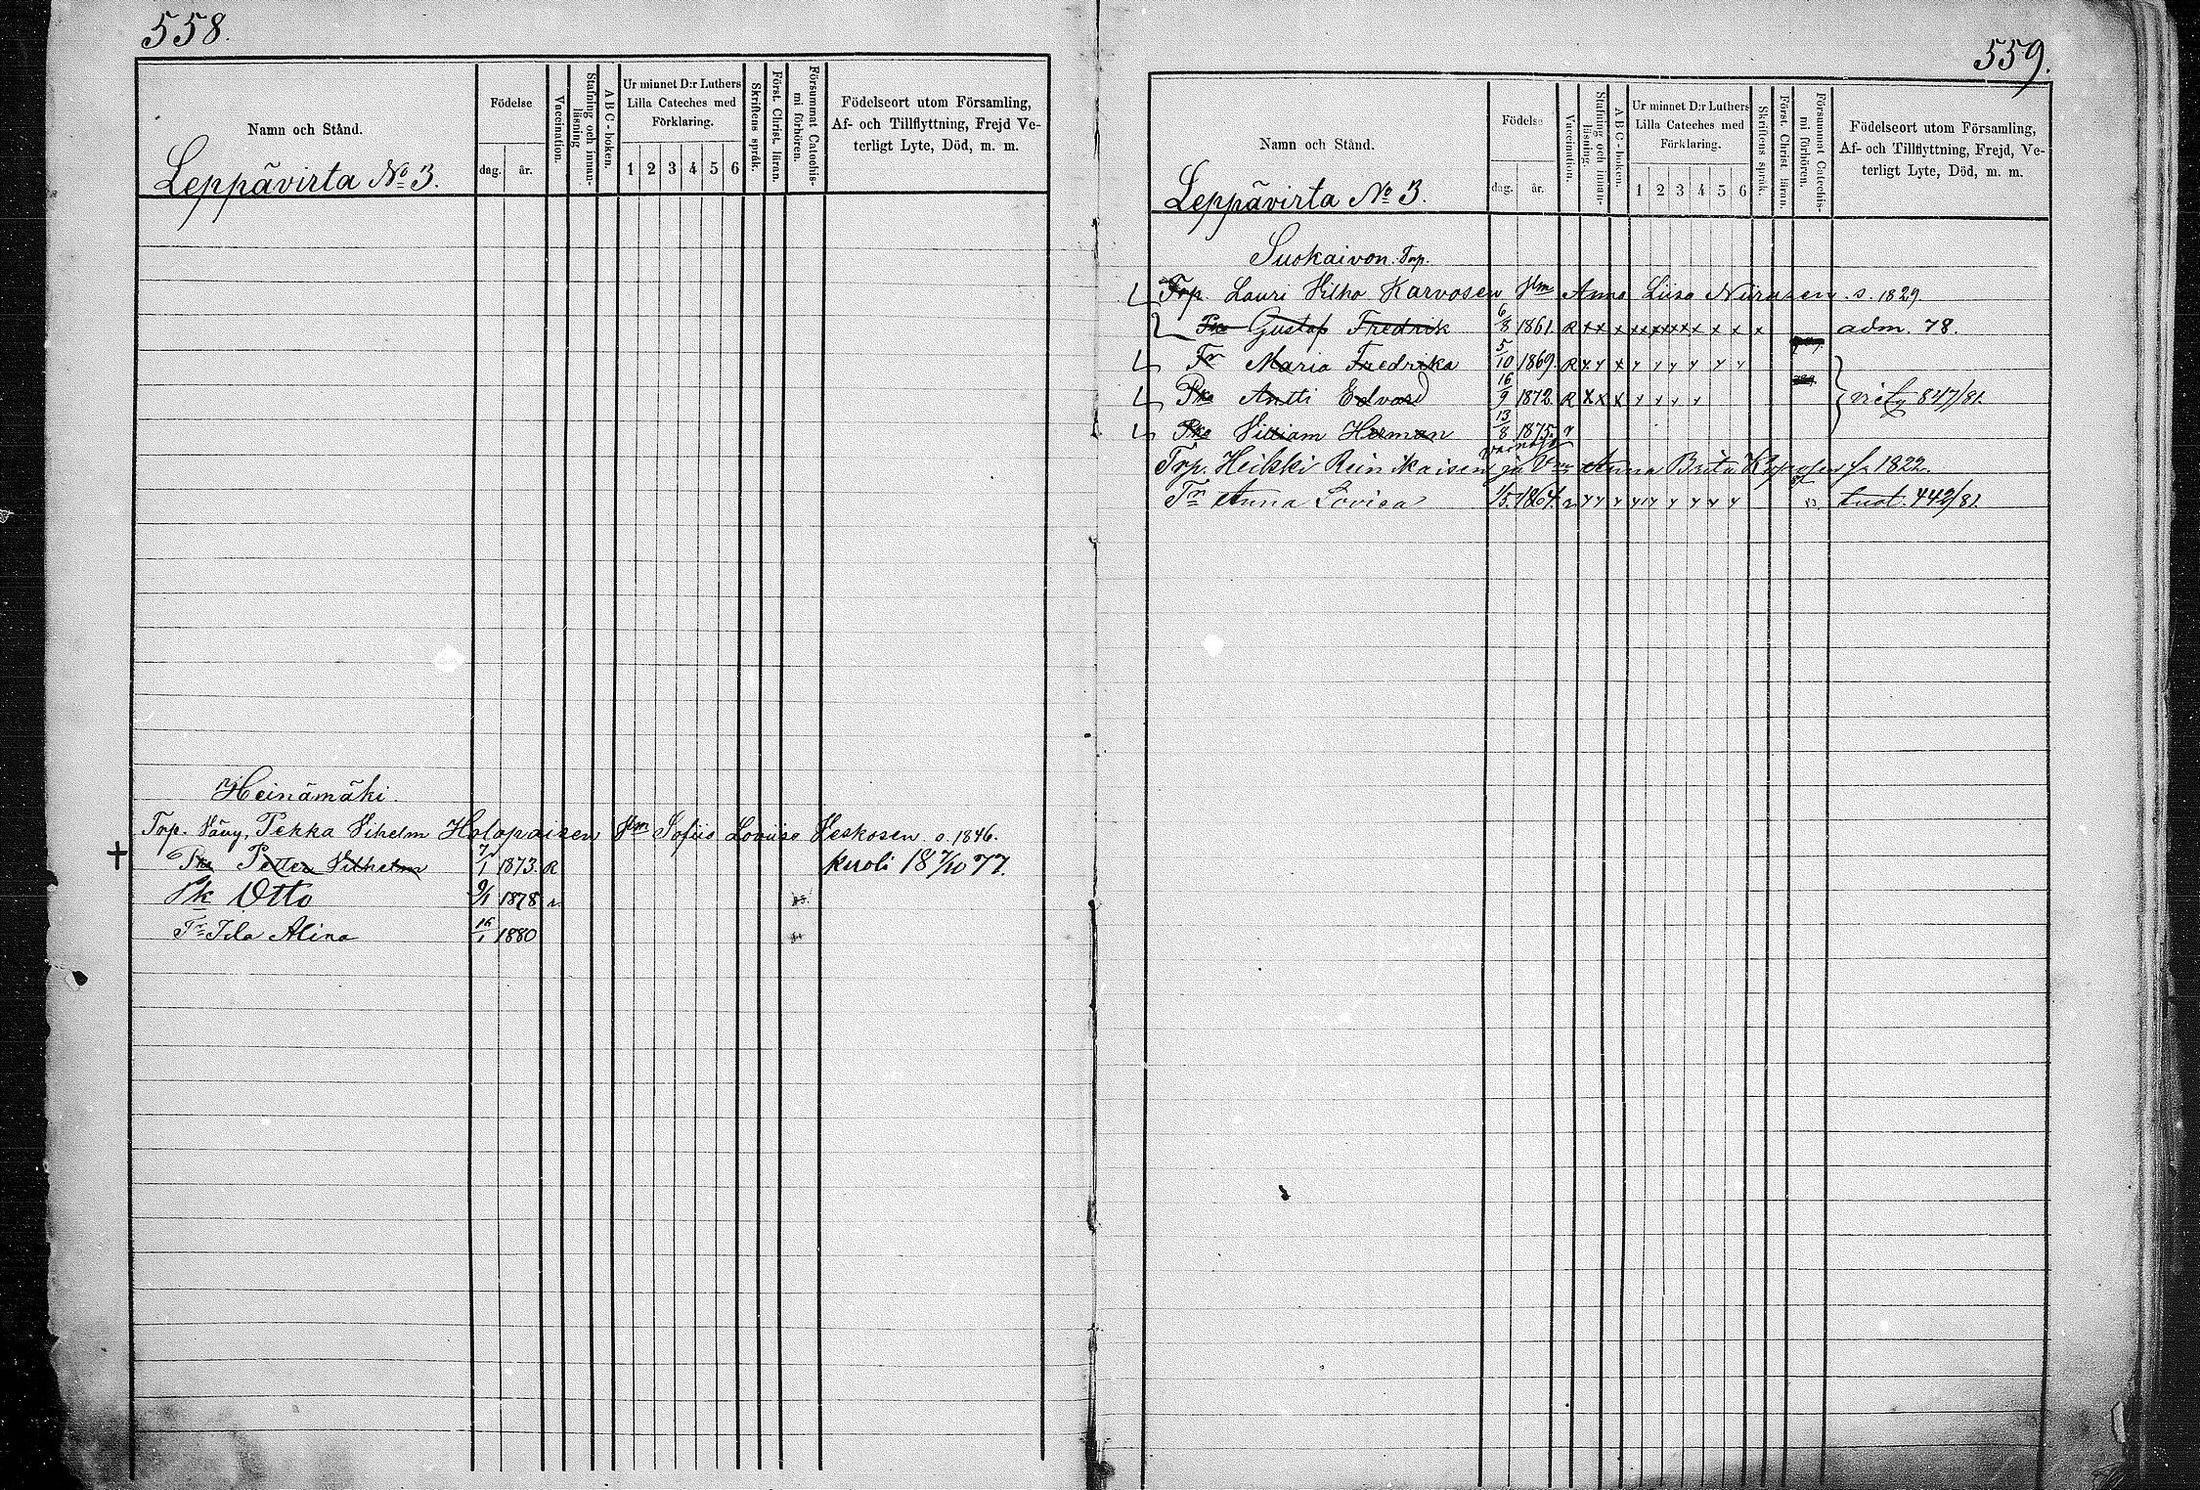 558.
Namn och Stånd.
Leppävirta No 3.
Födelse
dag. år.
Vaccination.
Stafning och innan-
läsning
A B C - boken.
Ur minnet D:r Luthers
Lilla Cateches med
Förklaring.
1 2 3 4 5 6
Skriftens språk.
Först. Christ. läran.
Försummat Catechis-
mi förhören.
Födelseort utom Församling,
Af- och Tillflyttning, Frejd Ve-
terligt Lyte, Död, m. m.
Heinämäki.
Trp. Vävy, Pekka Vihelm Holopaisen Hm Sofiis Loviisa Veskosen s. 1846.
Pka Petter Vilhelm 7/1 1873. R kuoli 18 7/10 77.
Pk Otto 9/1 1878
Tr Ida Alina 16/1 1880
559.
Namn och Stånd.
Leppävirta No 3.
Födelse
dag. år.
Vaccination.
Stafning och innan-
läsning.
A B C - boken.
Ur minnet D:r Luthers
Lilla Cateches med
Förklaring.
1 2 3 4 5 6
Skriftens språk.
Först. Christ läran.
Försummat Catechis-
mi förhören.
Födelseort utom Församling,
Af- och Tillflyttning, Frejd, Ve-
terligt Lyte, Död, m. m.
Suokaivon. Trp.
Trp. Lauri Vilho Karvosen Hm Anna Liisa Niirasen s. 1829.
Pka Gustaf Fredrik 6/8 1861. R x x x x x x x x x x x adm. 78.
Tr Maria Fredrika 5/10 1869. R
Pka Antti Edvard 16/9 1872. R x x x 847/81.
Pka Viliam Herman 13/8 1875.
Trp. Heikki Reinikaisen ja Anna Brita 1822.
Tr Anna Lovisa 1/5 1864. 442/81.